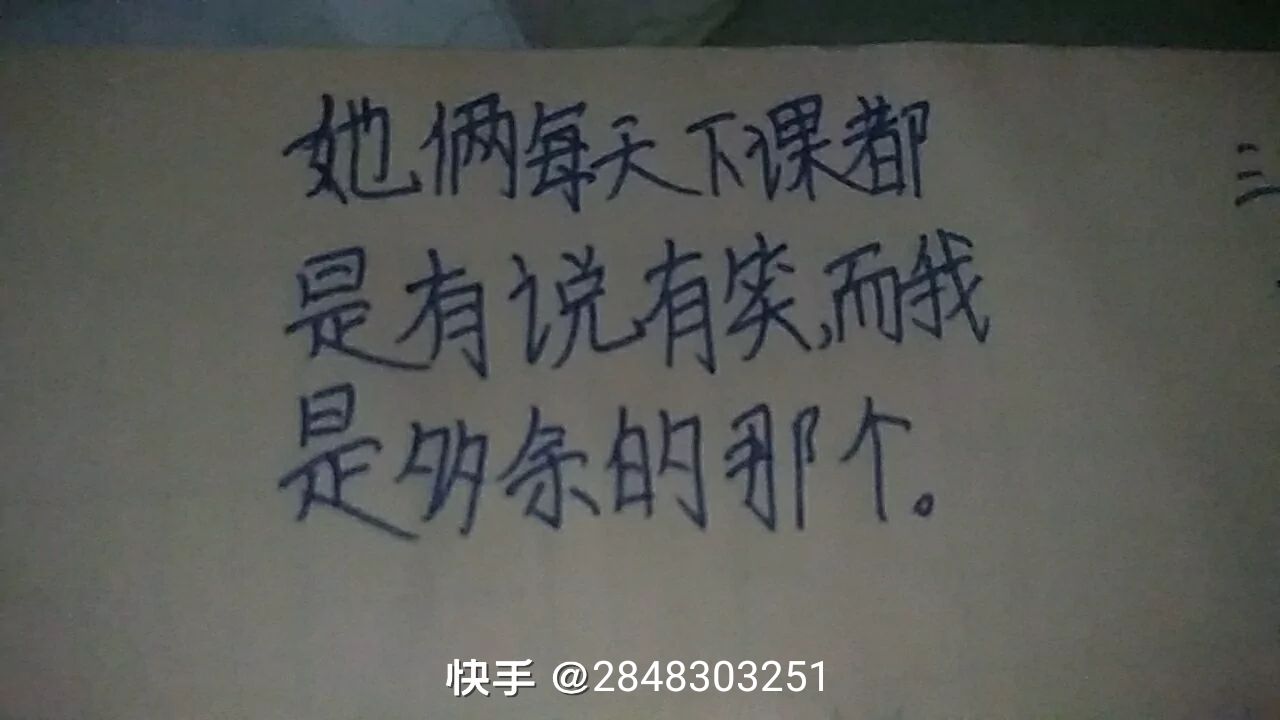 她俩每天下课都
是有说有笑,而我
是多余的那个。
三
快手 @2848303251